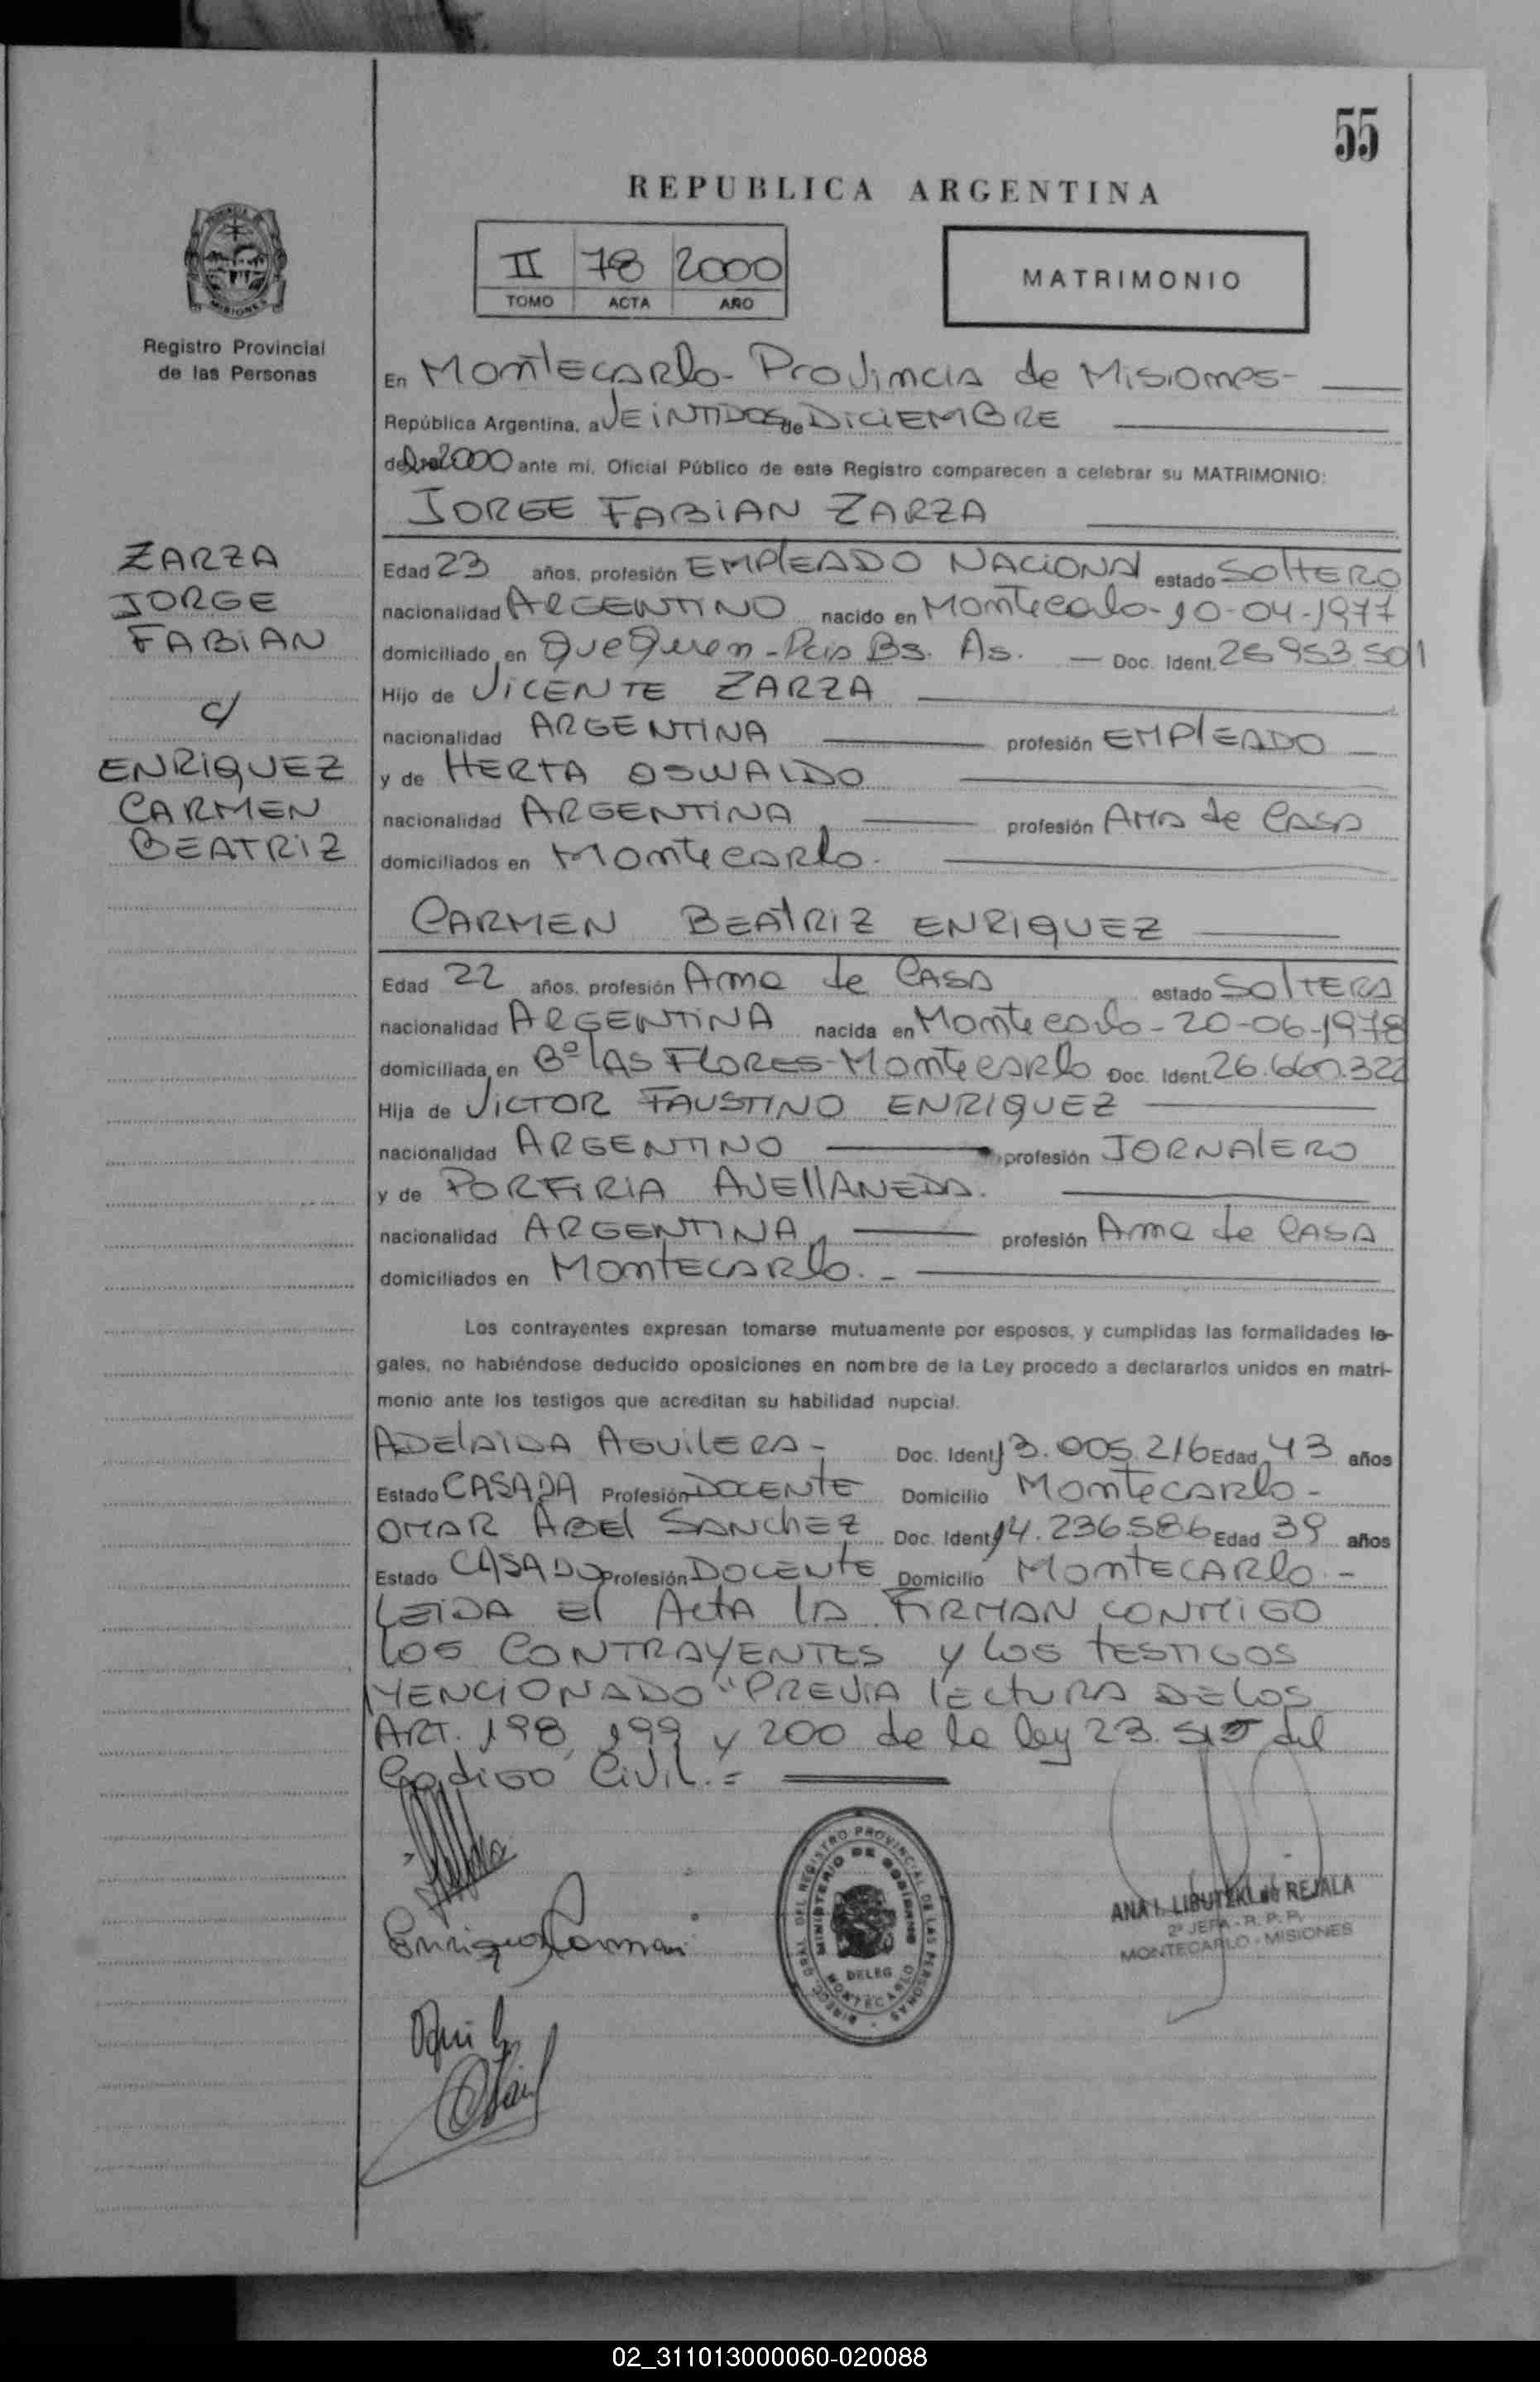 55
REPUBLICA ARGENTINA
II 78 2000
TOMO ACTA AÑO
MATRIMONIO
Registro Provincial
de las Personas
En MontECARlo - Provincia de Misiones -
República Argentina, a VEiNTIDOS de DiCIEMBRE
de 2000 ante mí, Oficial Público de este Registro comparecen a celebrar su MATRIMONIO:
JORGE FABIAN ZARZA
ZARZA
JORGE
FABIAN
c/
ENRIQUEZ
CARMEN
BEATRIZ
Edad 23 años, profesión EMPlEADO NACIONAl estado SOlTERO
nacionalidad ARGENTINO nacido en Montecarlo - 10-04-1977
domiciliado en QueQuen - Pcia Bs. As. — Doc. Ident. 25953501
Hijo de VICENTE ZARZA
nacionalidad ARGENTINA profesión EMPlEADO
y de HERTA OSWAlDO
nacionalidad ARGENTINA profesión AMA de CASA
domiciliados en MontecARlo.
CARMEN BEATRIZ ENRIQUEZ
Edad 22 años, profesión Ama de CASA estado SOlTERA
nacionalidad ARGENTINA nacida en Montecarlo - 20-06-1978
domiciliada en Bº lAS FLORES - MontecARlo Doc. Ident. 26.660.322
Hija de VICTOR FAUSTINO ENRIQUEZ
nacionalidad ARGENTINO profesión JORNAlERO
y de PORFIRIA AVEllANEDA.
nacionalidad ARGENTINA profesión Ama de CASA
domiciliados en MontECARlo. -
Los contrayentes expresan tomarse mutuamente por esposos, y cumplidas las formalidades le-
gales, no habiéndose deducido oposiciones en nombre de la Ley procedo a declararlos unidos en matri-
monio ante los testigos que acreditan su habilidad nupcial.
ADElAIDA AGUILERA - Doc. Ident. 13.005.216 Edad 43 años
Estado CASADA Profesión DOCENTE Domicilio MontecARlo -
OMAR ABEl SANCHEZ Doc. Ident. 14.236586 Edad 39 años
Estado CASADO Profesión DOCENTE Domicilio MontECARlo. -
LEIDA El ACtA lA FIRMAN CONMIGO
lOS CONTRAYENTES y lOS tESTIGOS
MENCIONADO "PREVIA lECtURA DE LOS
ART. 198, 199 y 200 de la ley 23.515 del
Codigo Civil. =
Enriquez Carmen
DIRECC. GRAL. DEL REGISTRO PROVINCIAL DE LAS PERSONAS
MINISTERIO DE GOBIERNO
DELEG
MONTECARLO
ANA I. LIBUTZKI de REJALA
2ª JEFA - R. P. P.
MONTECARLO - MISIONES
02_311013000060-020088